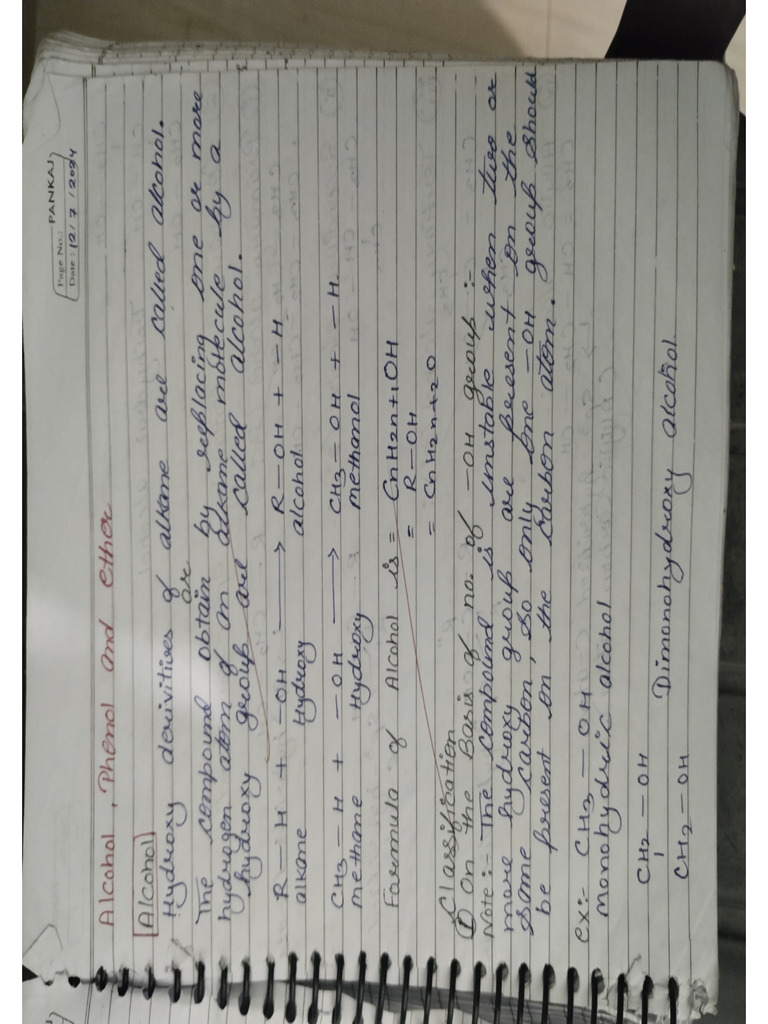 PANKAJ
Page No.:
Date: 12/7/2024
Alcohol, Phenol and ether
Alcohol
Hydroxy derivitives of alkane are called alcohol.
or
The compound obtain by replacing one or more
hydrogen atom of an alkane molecule by a
hydroxy group are called alcohol.
R — H + —OH ⟶ R—OH + —H
alkane Hydroxy alcohol
CH3 — H + —OH ⟶ CH3—OH + —H.
methane Hydroxy methanol
Formula of Alcohol is = CnH2n+1OH
= R—OH
= CnH2n+2O
Classification
① On the Basis of no. of —OH group :-
Note:- The compound is unstable when two or
more hydroxy group are present on the
same carbon, so only one —OH group should
be present on the carbon atom.
ex:- CH3 — OH
monohydric alcohol
CH2 — OH
|
CH2 — OH Dimonohydroxy alcohol